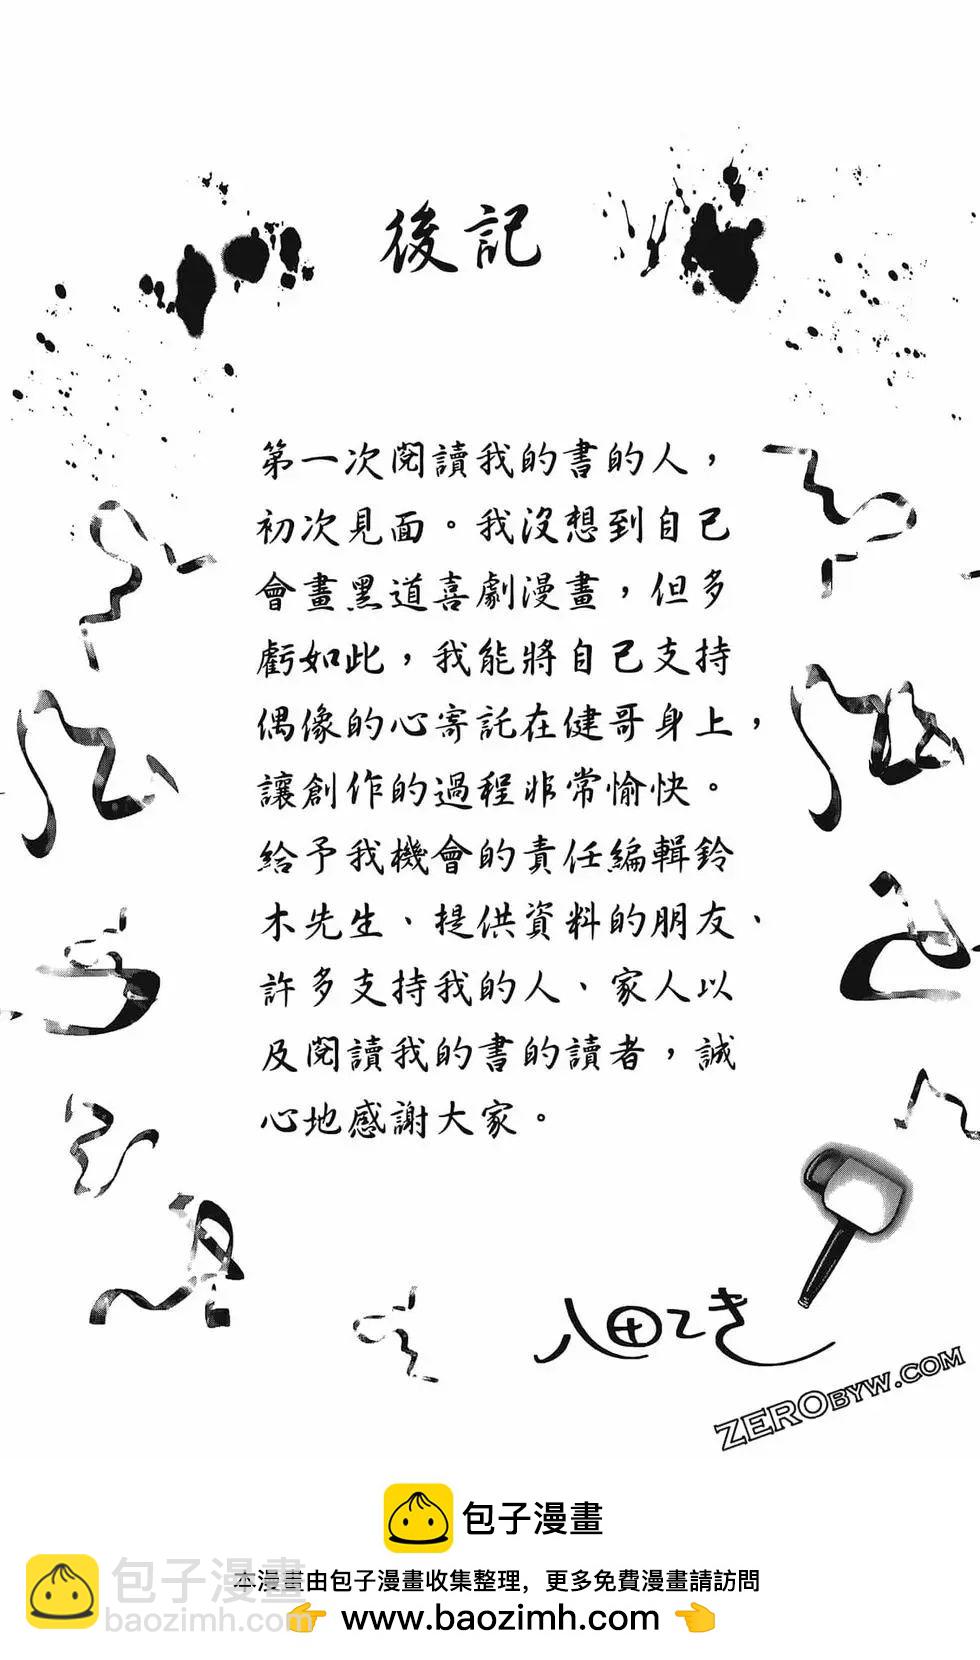 後記
第一次閱讀我的書的人，
初次見面。我沒想到自己
會畫黑道喜劇漫畫，但多
虧如此，我能將自己支持
偶像的心寄託在健哥身上，
讓創作的過程非常愉快。
給予我機會的責任編輯鈴
木先生、提供資料的朋友、
許多支持我的人、家人以
及閱讀我的書的讀者，誠
心地感謝大家。
八田てき
ZEROBYW.COM
包子漫畫
包子漫畫
本漫畫由包子漫畫收集整理，更多免費漫畫請訪問
baozimh.com
👉 www.baozimh.com 👈